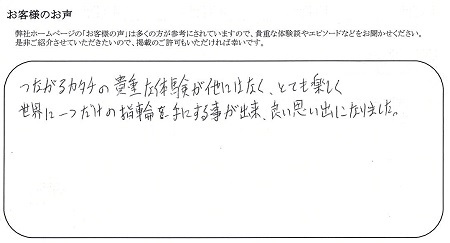 お客様のお声
弊社ホームページの「お客様の声」は多くの方が参考にされていますので、貴重な体験談やエピソードなどをお聞かせください。
是非ご紹介させていただきたいので、掲載のご許可もいただければ幸いです。
つながるカタチの貴重な体験が他にはなく、とても楽しく
世界に一つだけの指輪を手にする事が出来、良い思い出になりました。